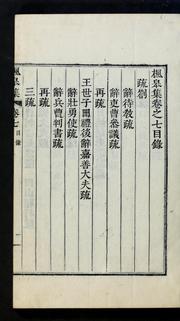 楓皐集卷之七目錄
疏劄
辭待敎疏
辭吏曹參議疏
再疏
王世子冊禮後辭嘉善大夫疏
辭壯勇使疏
辭兵曹判書疏
再疏
三疏
楓皐集 卷七 目錄 一